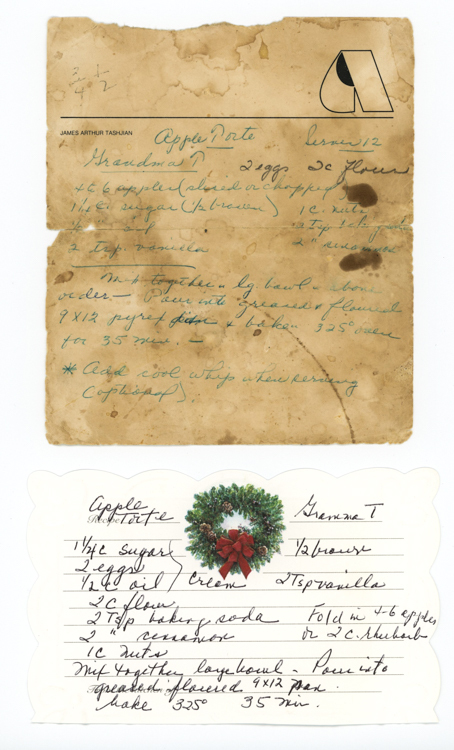 3/4 1/2
JAMES ARTHUR TASHJIAN
Apple Torte Serves 12
Grandma T 2 eggs 2c flour
4 to 6 apples (sliced or chopped)
sugar (1/2 brown) 1 C. nuts
" oil 2 tsp
2 tsp. vanilla 2 " cinnamon
Mix together in lg. bowl in above
order — Pour into greased & floured
9 x 12 pyrex & bake 325° oven
for 35 min. —
* Add cool whip when serving
(optional).
Apple Gramma T
Recipe Torte
1 1/4 C sugar 1/2 brown
2 eggs
1/2 C oil Cream 2 Tsp vanilla
2 C flour
2 Tsp baking soda Fold in 4-6 apples
2 " cinnamon or 2 C. rhubarb
1 C nuts
Mix together large bowl - Pour into
greased floured 9x12 pan.
bake 325° 35 min.